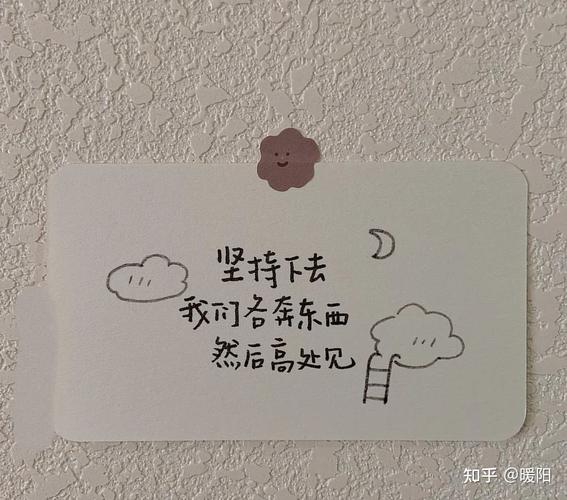 坚持下去
我们各奔东西
然后高处见
知乎 @暖阳